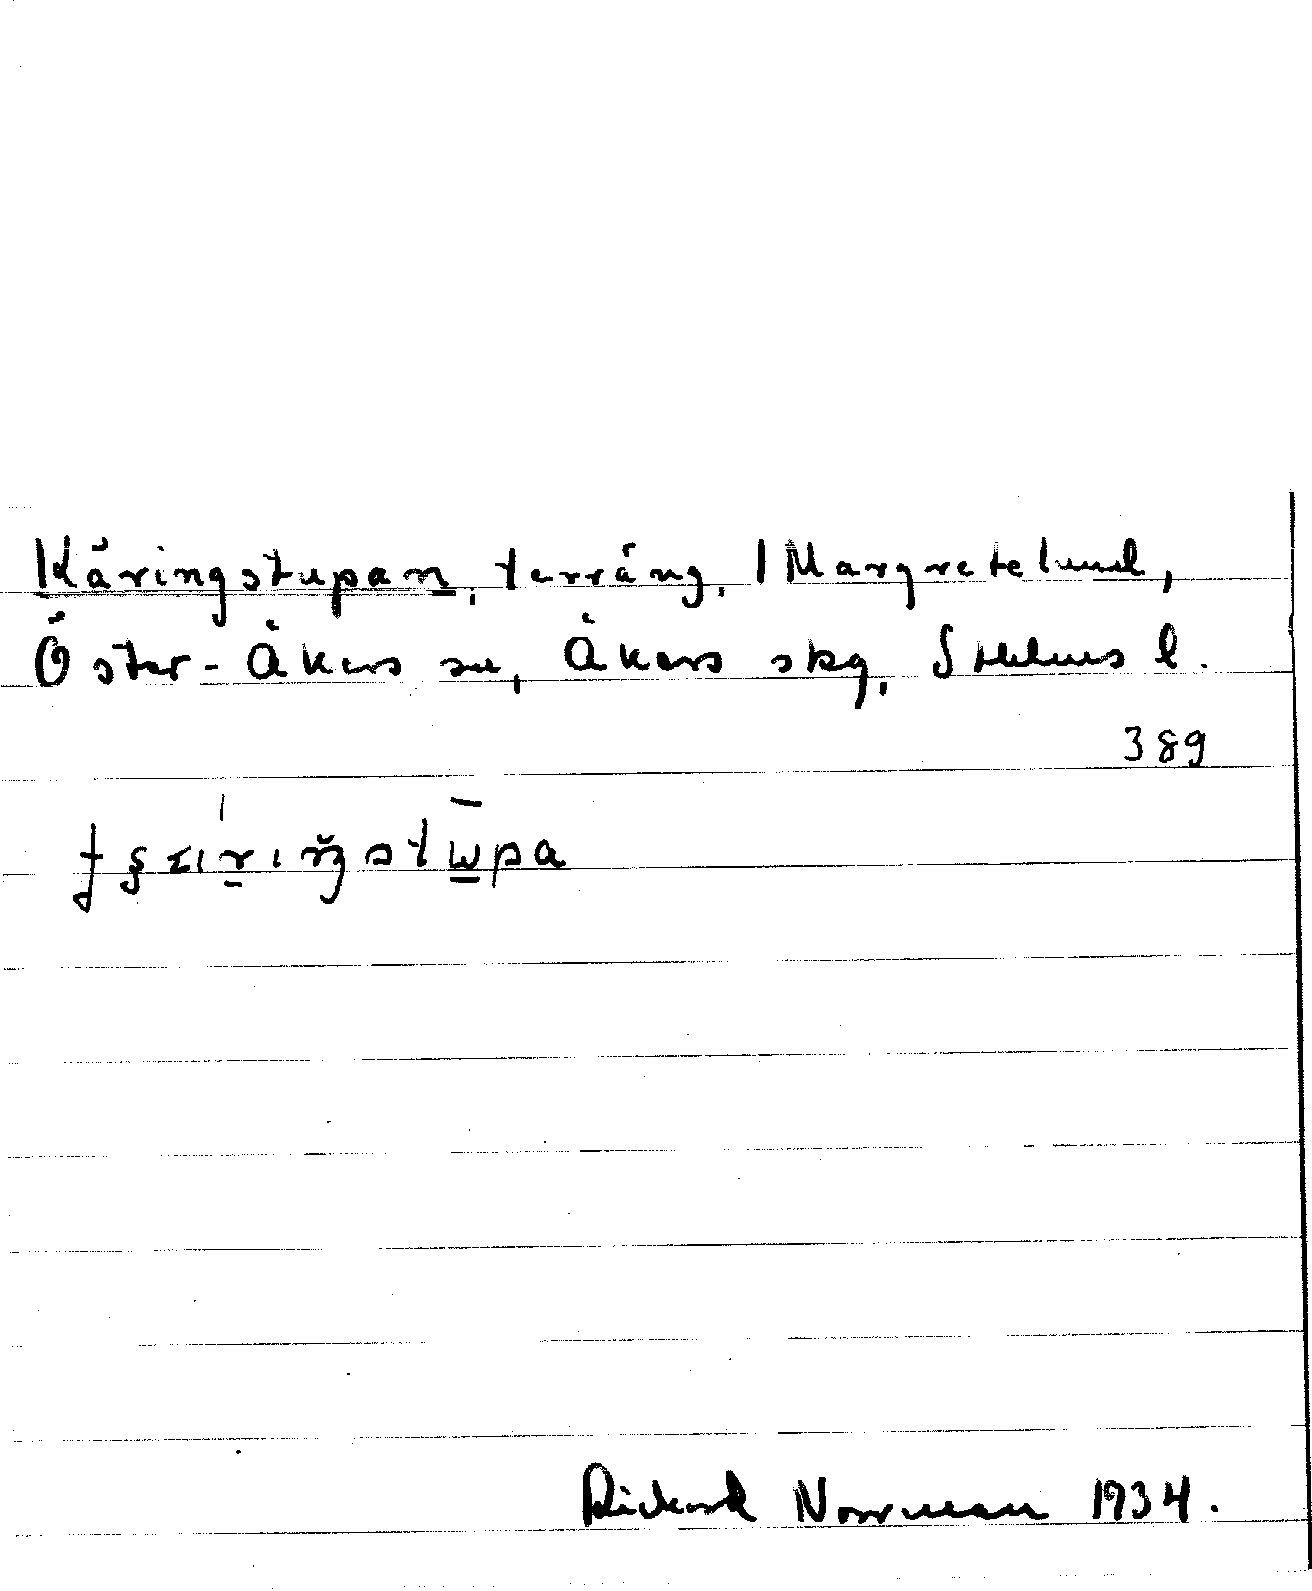 Käringstupan, terräng, 1 Margretelund,
Öster-Åkers sn, Åkers skg, Sthlms l.
389
Rickard Norrman 1934.